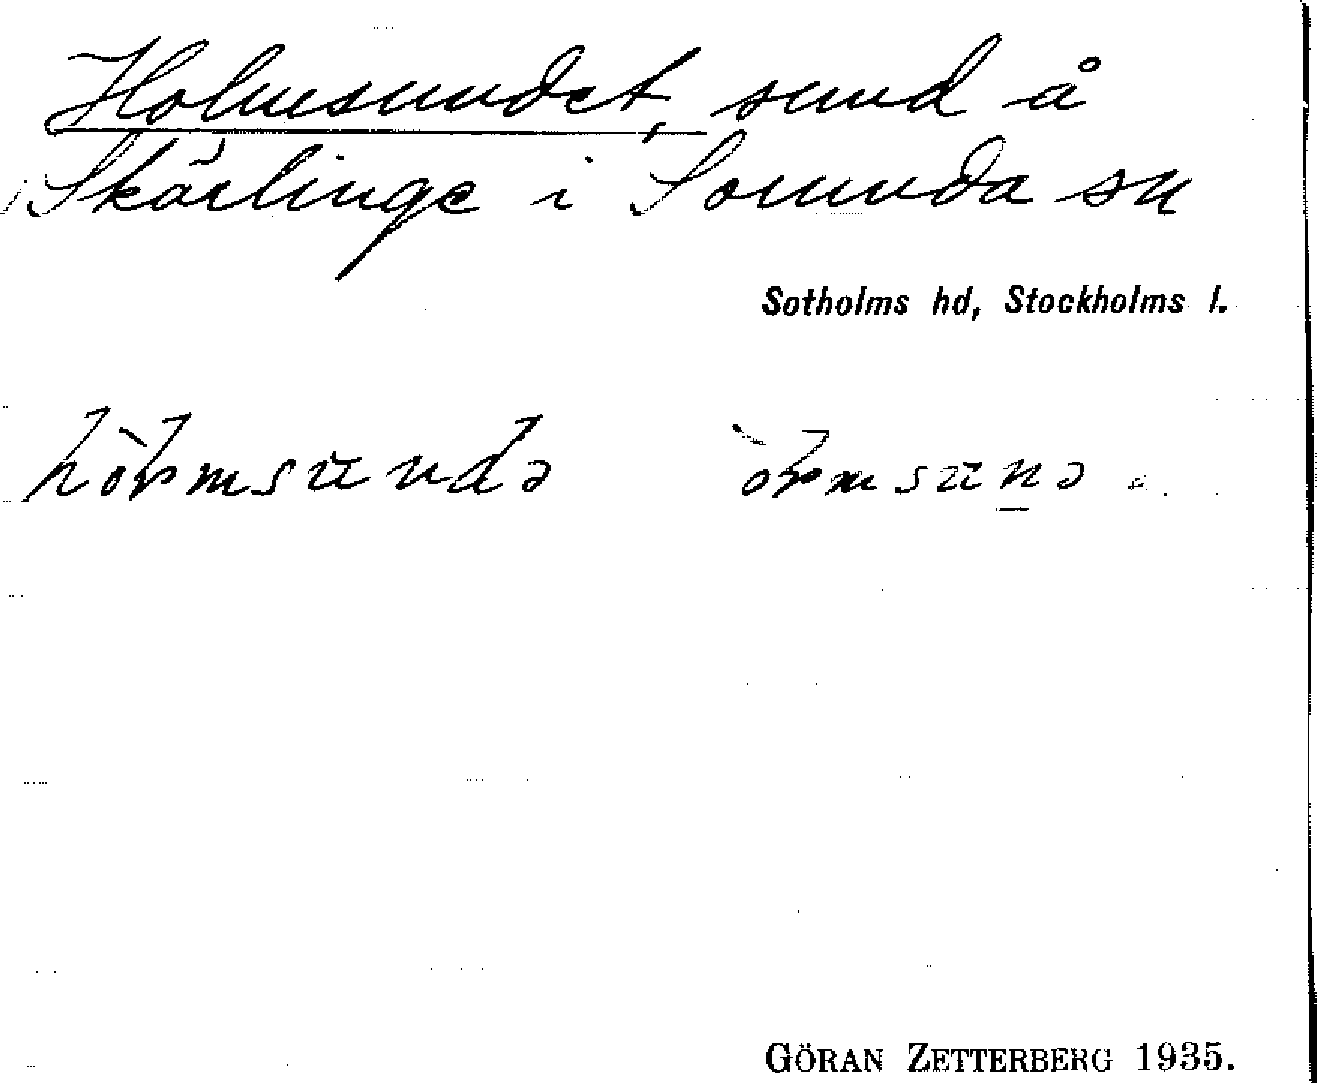 Holmsundet, sund å
Skärlinge i Sorunda sn
Sotholms hd, Stockholms l.
GÖRAN ZETTERBERG 1935.